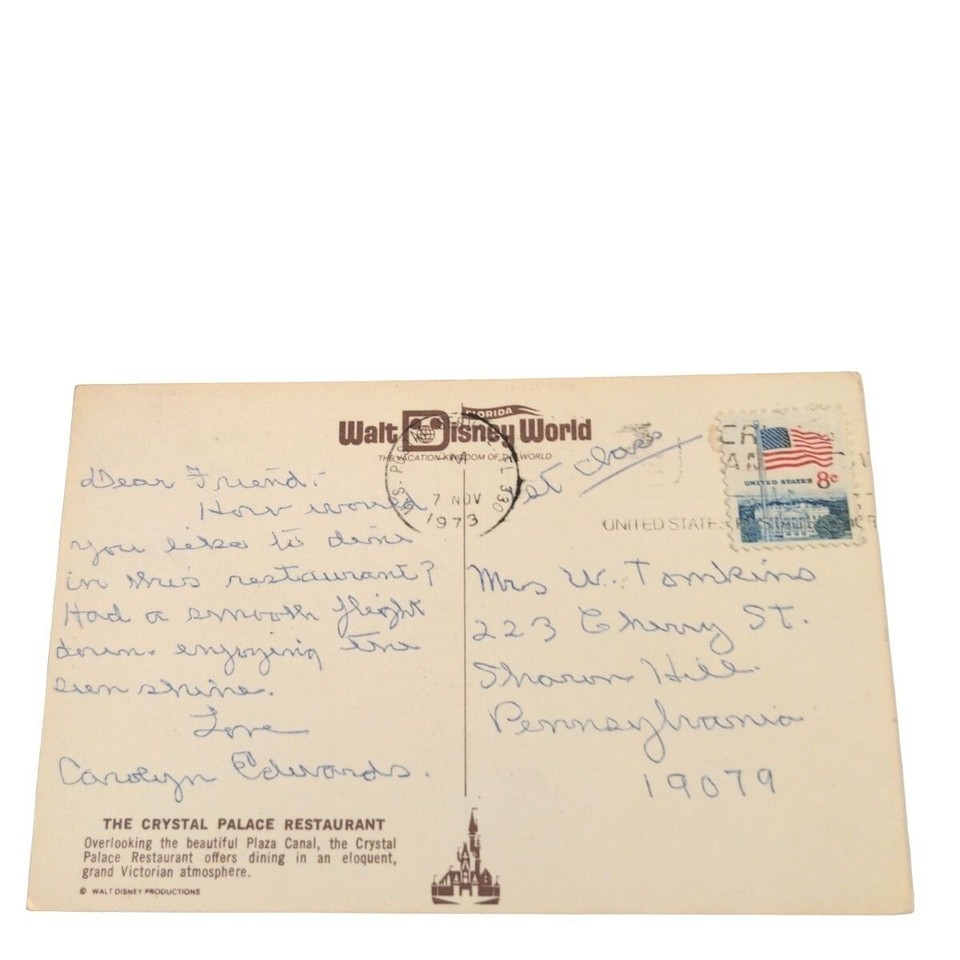 FLORIDA
Walt Disney World
THE VACATION KINGDOM OF THE WORLD
7 NOV
1973
330
1st class
UNITED STATES
8c
UNITED STATES
Dear Friend:
How would
you like to dine
in this restaurant?
Had a smooth flight
down. enjoying the
sun shine.
Love
Carolyn Edwards.
Mrs W. Tomkins
223 Cherry St.
Sharon Hill
Pennsylvania
19079
THE CRYSTAL PALACE RESTAURANT
Overlooking the beautiful Plaza Canal, the Crystal
Palace Restaurant offers dining in an eloquent,
grand Victorian atmosphere.
© WALT DISNEY PRODUCTIONS